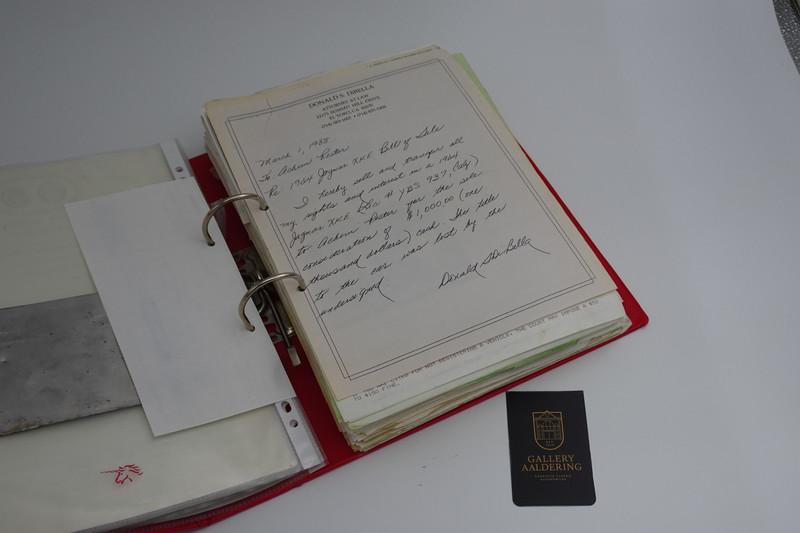 DONALD S. DIBELLA
ATTORNEY AT LAW
EL TORO, CA
March 1, 1988
To Achim Rester
Re 1964 Jaguar XKE Bill of Sale
I hereby sell and transfer all
my rights and interest in a 1964
Jaguar XKE Lic # YBS 937, (
to Achim Rester for the sole
consideration of $1,000.00 (one
thousand dollars) cash. The title
to the car was lost by the
undersigned
Donald S DiBella
FOR NOT REGISTERING A VEHICLE, THE COURT MAY IMPOSE A $50
TO $150 FINE.
GALLERY
AALDERING